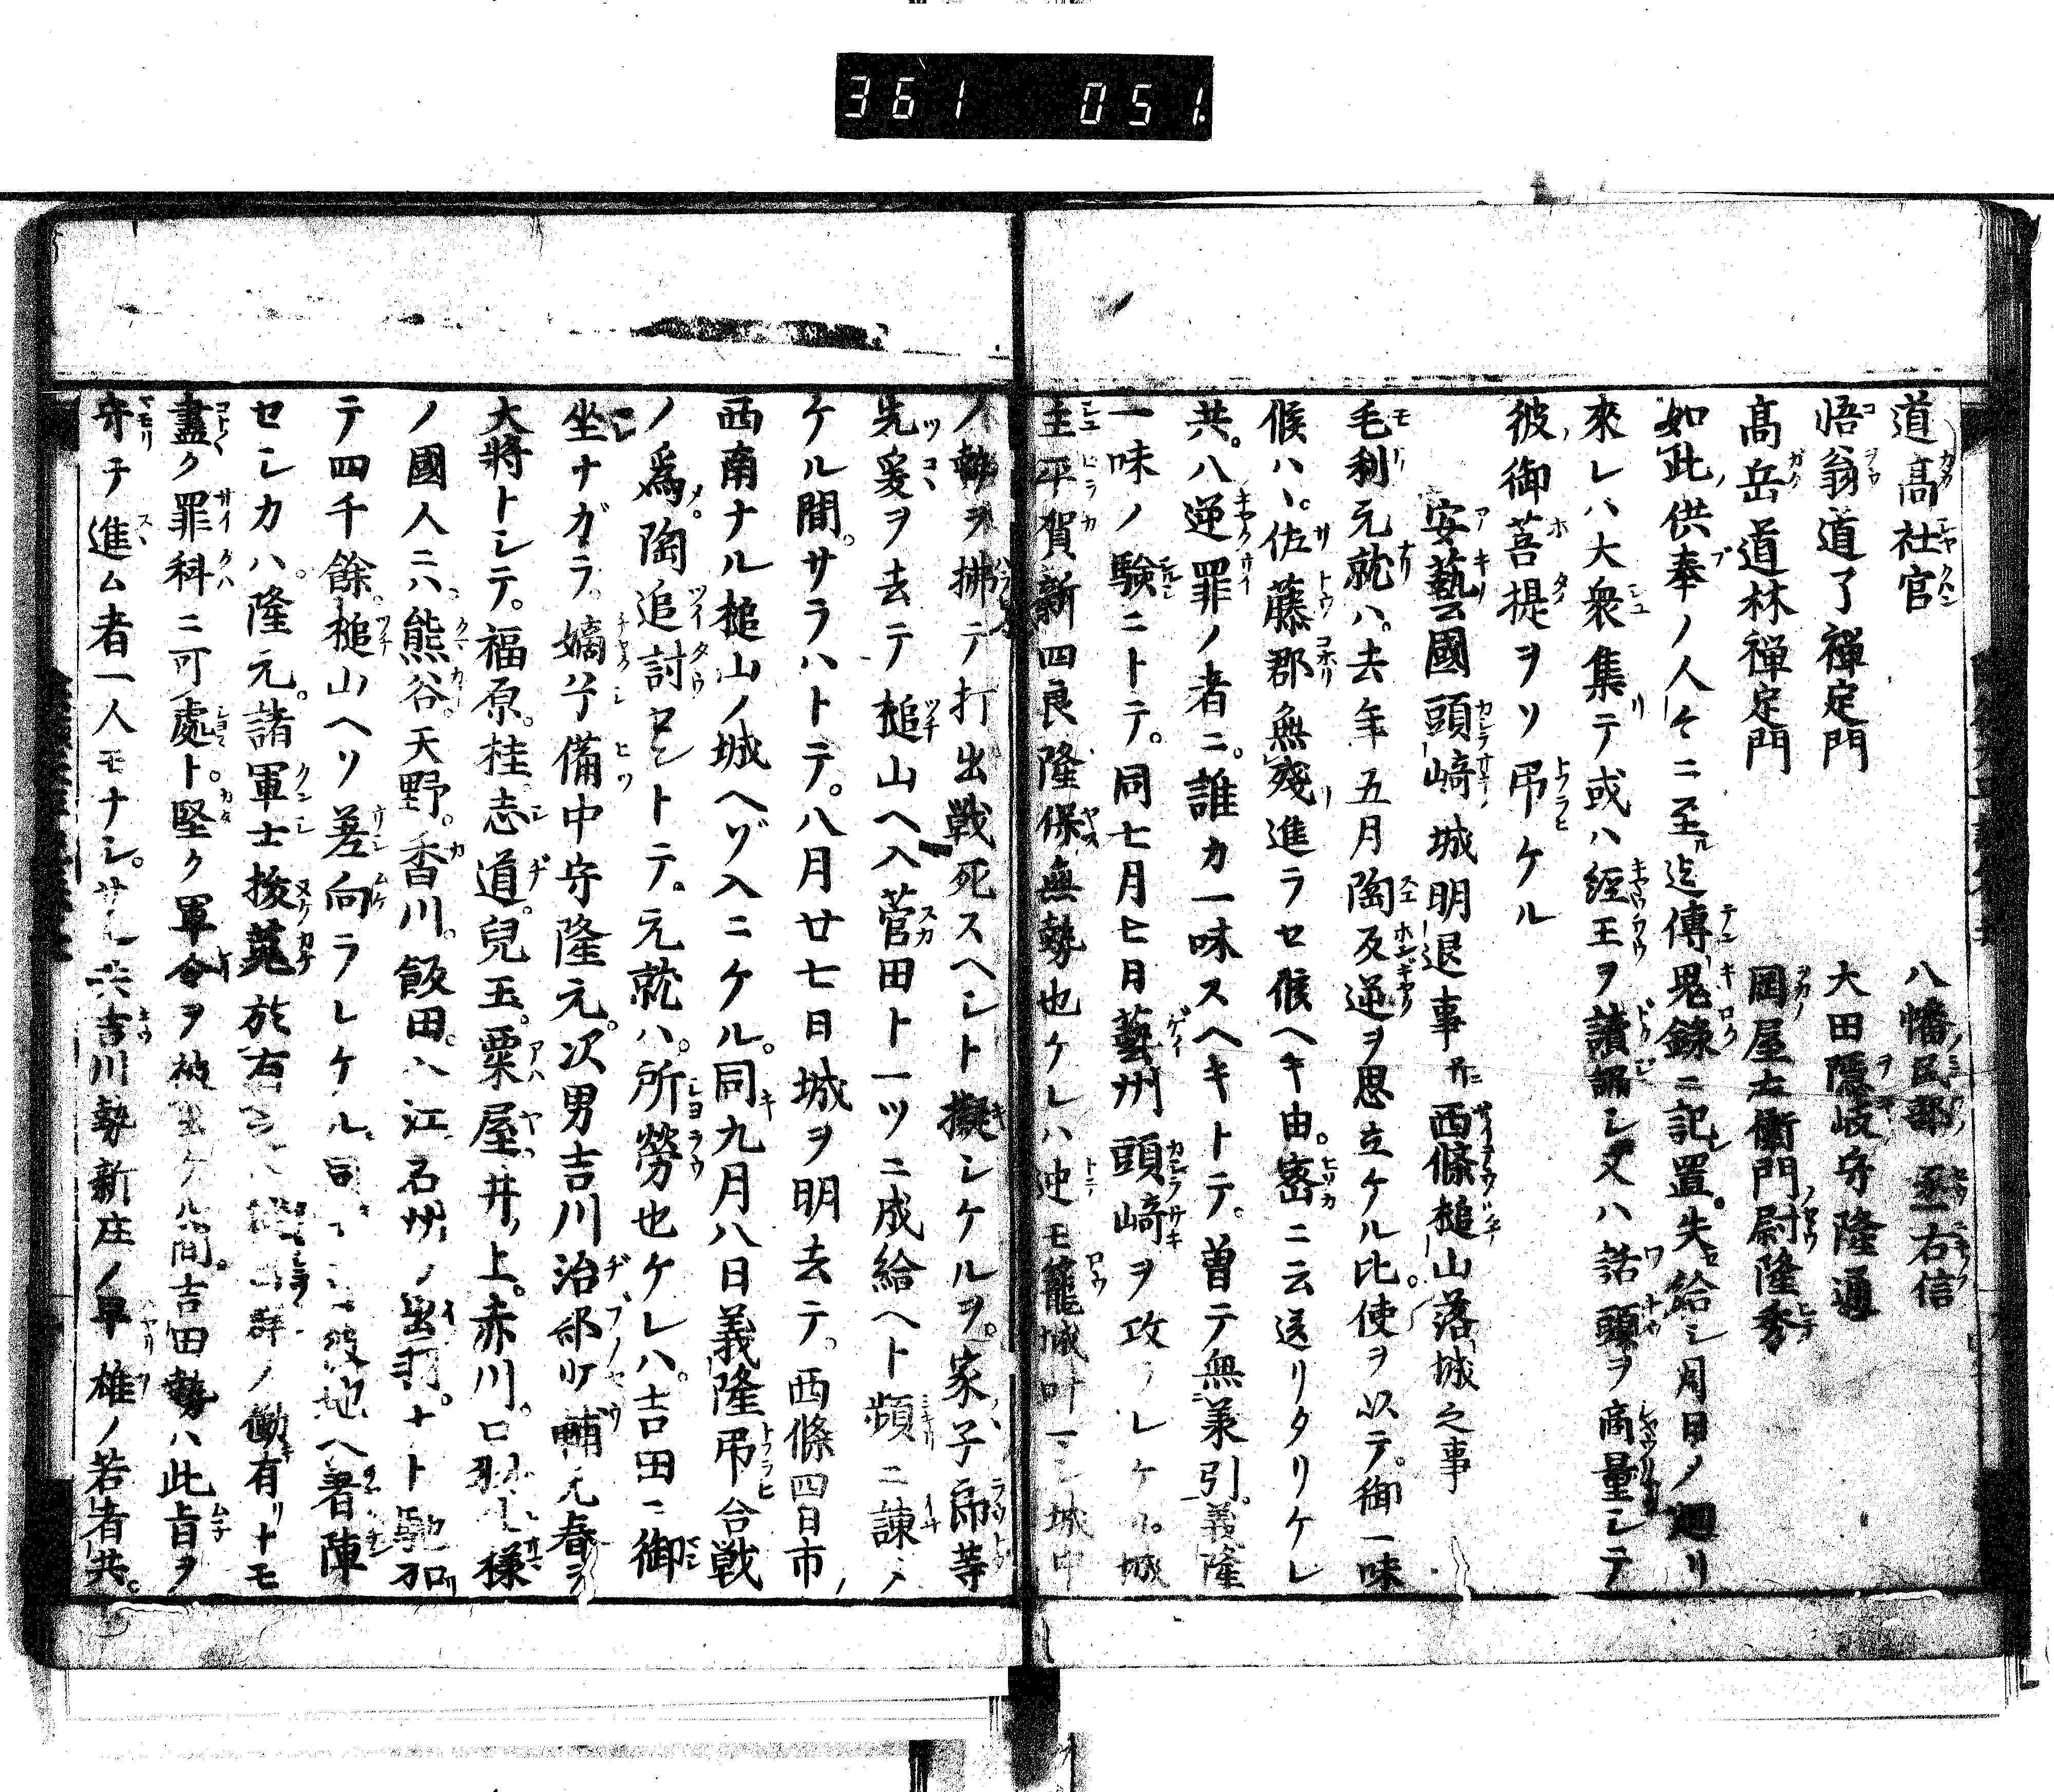 361 051
道髙社官 八幡民部丞右信
悟翁道了禅定門 大田隠岐守隆通
髙岳道林禅定門 岡屋左衛門尉隆秀
如此供奉ノ人々ニ至迄傳鬼錄ニ記置失給シ月日ノ廻リ
來レハ大衆集テ或ハ經王ヲ讀誦シ又ハ話頭ヲ商量シテ
彼御菩提ヲソ吊ケル
安藝國頭﨑城明退事 并西條槌山落城之事
毛利元就ハ去年五月陶反逆ヲ思立ケル比使ヲ以テ御一味
候ハヽ佐藤郡無殘進ラセ候ヘキ由密ニ云送リタリケレ
共八逆罪ノ者ニ誰カ一味スヘキトテ曽テ無兼引義隆
一味ノ験ニトテ同七月七日藝州頭﨑ヲ攻ラレケル城
主平賀新四良隆保無勢也ケレハ迚モ籠城叶 シ城中
ノ勢ヲ拂テ打出戦死スヘシト擬シケルヲ家子郎等
先爰ヲ去テ槌山ヘ入菅田ト一ツニ成給ヘト頻ニ諫
ケル間サラハトテ八月廿七日城ヲ明去テ西條四日市ノ
西南ナル槌山ノ城ヘソ入ニケル同九月八日義隆吊合戦
ノ爲陶追討セントテ元就ハ所勞也ケレハ吉田ニ御
坐ナガラ嫡子備中守隆元次男吉川治部少輔元春ヲ
大將トシテ福原桂志道兒玉粟屋井上赤川口羽 様
ノ國人ニハ熊谷天野香川飯田入江石州ノ出羽ナト馳加
テ四千餘槌山ヘソ差向ラレケル同 彼地ヘ着陣
セシカハ隆元諸軍士抜 於有 群ノ働有リトモ
盡ク罪科ニ可處ト堅ク軍令ヲ被 ケル間吉田勢ハ此旨ヲ
守テ進ム者一人モナシ サレ共吉川勢新庄ノ早雄ノ若者共